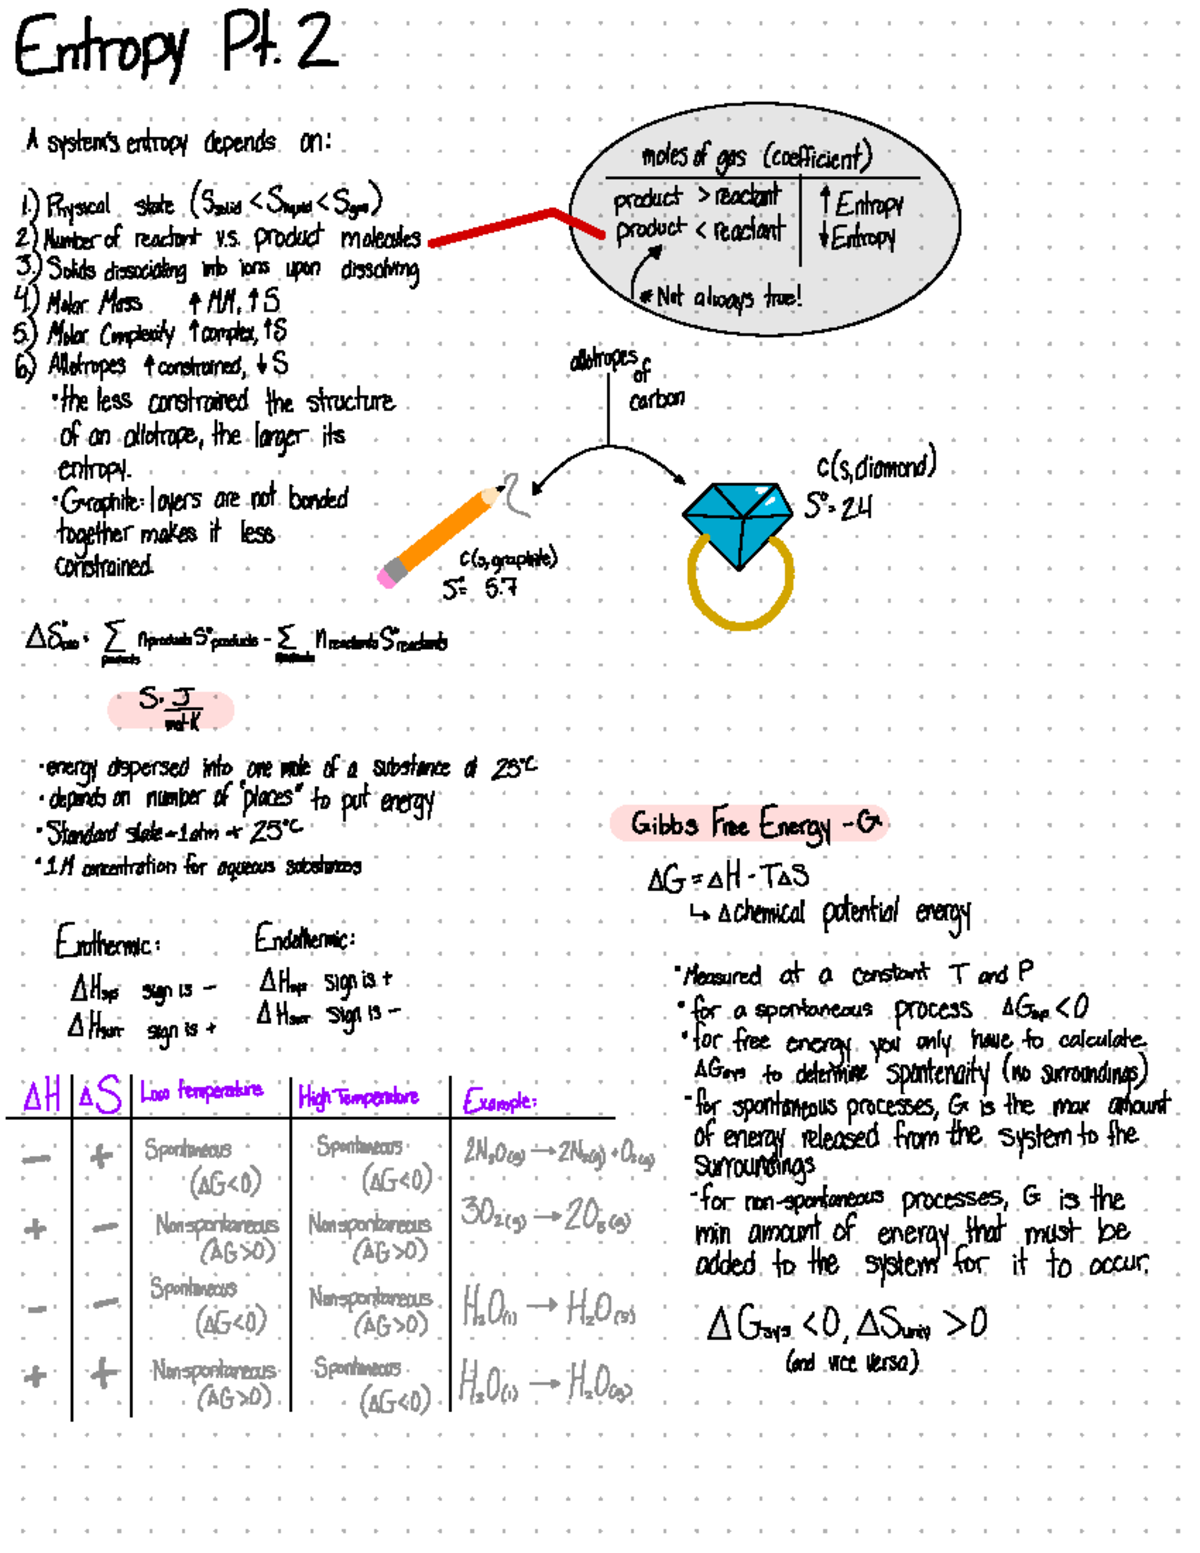 Entropy Pt. 2
A system's entropy depends on:
1.) Physical state (Ssolid < Sliquid < Sgas)
2.) Number of reactant v.s. product molecules
3.) Solids dissociating into ions upon dissolving
4.) Molar Mass ↑ MM, ↑ S
5.) Molar Complexity ↑ complex, ↑ S
6.) Allotropes ↑ constrained, ↓ S
• the less constrained the structure
of an allotrope, the larger its
entropy.
• Graphite: layers are not bonded
together makes it less
constrained.
moles of gas (coefficient)
product > reactant ↑ Entropy
product < reactant ↓ Entropy
* Not always true!
allotropes
of
carbon
C(s, graphite)
S° = 5.7
C(s, diamond)
S° = 2.4
ΔS°rxn = Σ products nproducts S°products - Σ reactants nreactants S°reactants
S = J
mol·K
• energy dispersed into one mole of a substance at 25°C
• depends on number of "places" to put energy
• Standard state - 1 atm + 25°C
• 1M concentration for aqueous substances
Exothermic:
ΔHsys sign is −
ΔHsurr sign is +
Endothermic:
ΔHsys sign is +
ΔHsurr sign is −
ΔH ΔS Low Temperature High Temperature Example:
− + Spontaneous (ΔG<0) Spontaneous (ΔG<0) 2N2O(g) → 2N2(g) + O2(g)
+ − Nonspontaneous (ΔG>0) Nonspontaneous (ΔG>0) 3O2(g) → 2O3(g)
− − Spontaneous (ΔG<0) Nonspontaneous (ΔG>0) H2O(l) → H2O(s)
+ + Nonspontaneous (ΔG>0) Spontaneous (ΔG<0) H2O(l) → H2O(g)
Gibbs Free Energy - G
ΔG = ΔH - TΔS
↳ Δ chemical potential energy
• Measured at a constant T and P
• for a spontaneous process ΔGsys < 0
• for free energy you only have to calculate
ΔGsys to determine spontenaity (no surroundings)
- for spontaneous processes, G is the max amount
of energy released from the system to the
surroundings
- for non-spontaneous processes, G is the
min amount of energy that must be
added to the system for it to occur.
ΔGsys < 0, ΔSuniv > 0
(and vice versa)